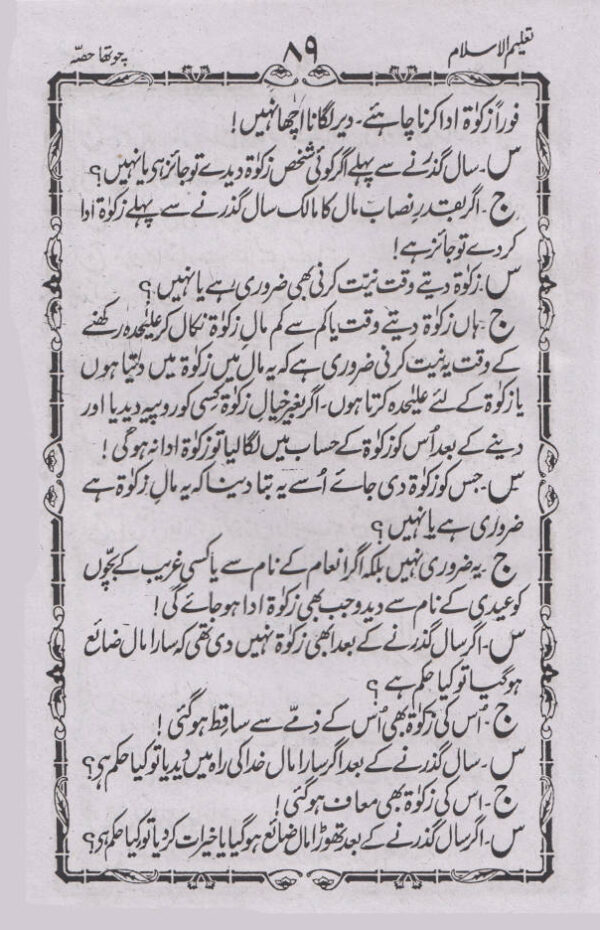 تعلیم الاسلام ۸۹ چوتھا حصّہ
فوراً زکوٰۃ ادا کرنا چاہئے۔ دیر لگانا اچھا نہیں!
س۔ سال گذرنے سے پہلے اگر کوئی شخص زکوٰۃ دیدے تو جائز ہی یا نہیں؟
ج۔ اگر بقدرِ نصاب مال کا مالک سال گذرنے سے پہلے زکوٰۃ ادا
کر دے تو جائز ہے!
س۔ زکوٰۃ دیتے وقت نیّت کرنی بھی ضروری ہے یا نہیں؟
ج۔ ہاں زکوٰۃ دیتے وقت یا کم سے کم مالِ زکوٰۃ نکال کر علیٰحدہ رکھنے
کے وقت یہ نیت کرنی ضروری ہے کہ یہ مال میں زکوٰۃ میں دیتا ہوں
یا زکوٰۃ کے لئے علیٰحدہ کرتا ہوں۔ اگر بغیر خیالِ زکوٰۃ کسی کو روپیہ دیدیا اور
دینے کے بعد اُس کو زکوٰۃ کے حساب میں لگا لیا تو زکوٰۃ ادا نہ ہوگی!
س۔ جس کو زکوٰۃ دی جائے اُسے یہ بتا دینا کہ یہ مالِ زکوٰۃ ہے
ضروری ہے یا نہیں؟
ج۔ یہ ضروری نہیں بلکہ اگر انعام کے نام سے یا کسی غریب کے بچّوں
کو عیدی کے نام سے دیدو جب بھی زکوٰۃ ادا ہو جائے گی!
س۔ اگر سال گذرنے کے بعد ابھی زکوٰۃ نہیں دی تھی کہ سارا مال ضائع
ہو گیا تو کیا حکم ہے؟
ج۔ اُس کی زکوٰۃ بھی اُس کے ذمّے سے ساقط ہو گئی!
س۔ سال گذرنے کے بعد اگر سارا مال خدا کی راہ میں دیدیا تو کیا حکم ہی؟
ج۔ اس کی زکوٰۃ بھی معاف ہو گئی!
س۔ اگر سال گذرنے کے بعد تھوڑا مال ضائع ہو گیا یا خیرات کر دیا تو کیا حکم ہی؟